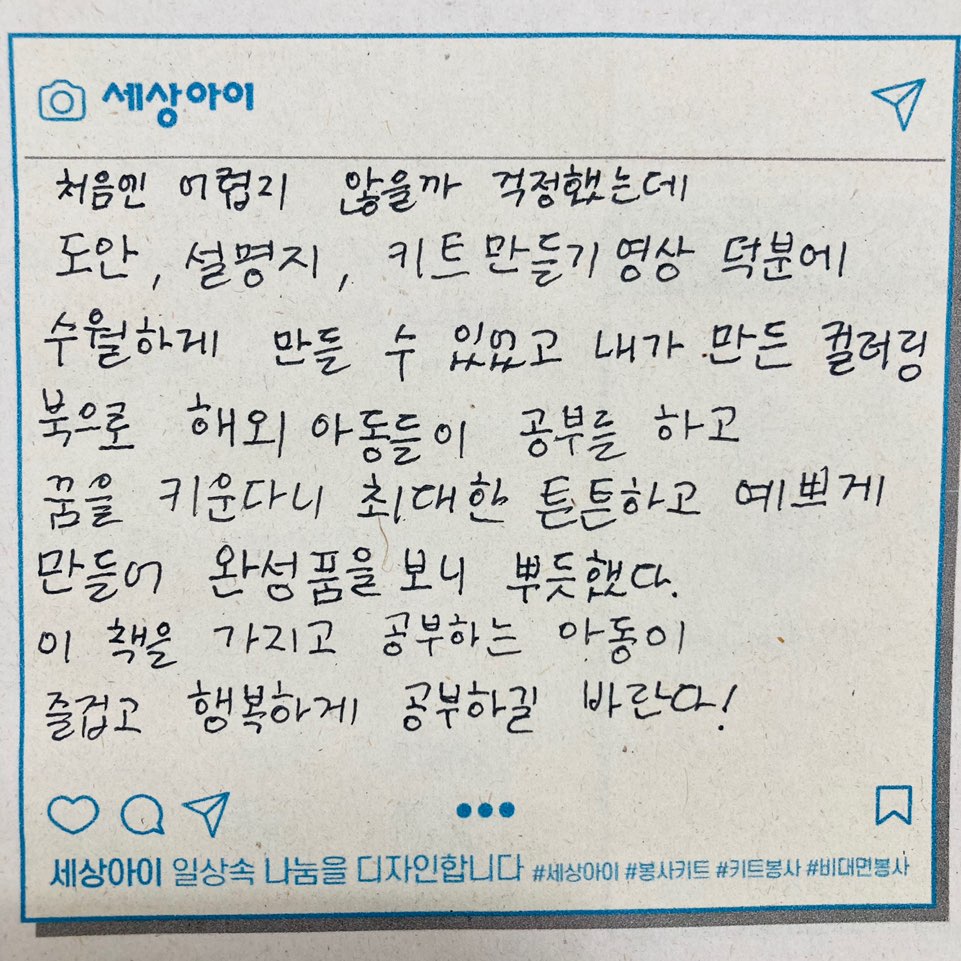 세상아이
처음엔 어렵지 않을까 걱정했는데
도안, 설명지, 키트 만들기 영상 덕분에
수월하게 만들 수 있었고 내가 만든 컬러링
북으로 해외 아동들이 공부를 하고
꿈을 키운다니 최대한 튼튼하고 예쁘게
만들어 완성품을 보니 뿌듯했다.
이 책을 가지고 공부하는 아동이
즐겁고 행복하게 공부하길 바란다!
세상아이 일상속 나눔을 디자인합니다 #세상아이 #봉사키트 #키트봉사 #비대면봉사